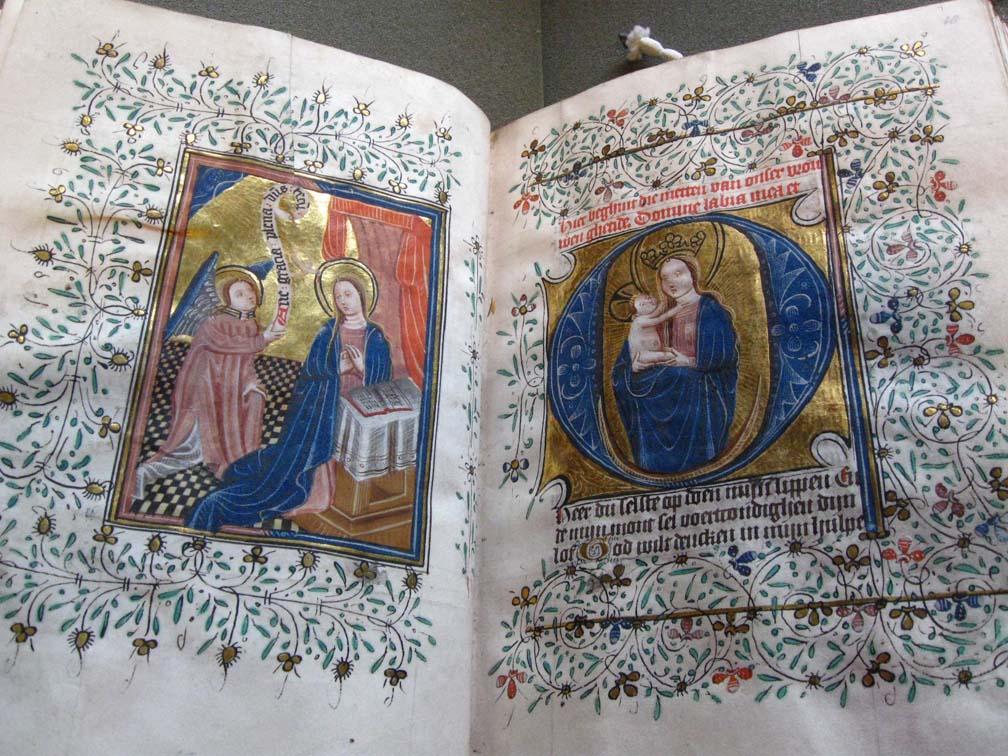 Aue gracia plena dns tecū
Hier beghint die metten van onser vrou
wen ghetide. Domine labia mea et
Heer du selste op doen mijn lippen En
de mijn mont sel voertcondighen dijn
lof God wilt dencken in mijn hulpe